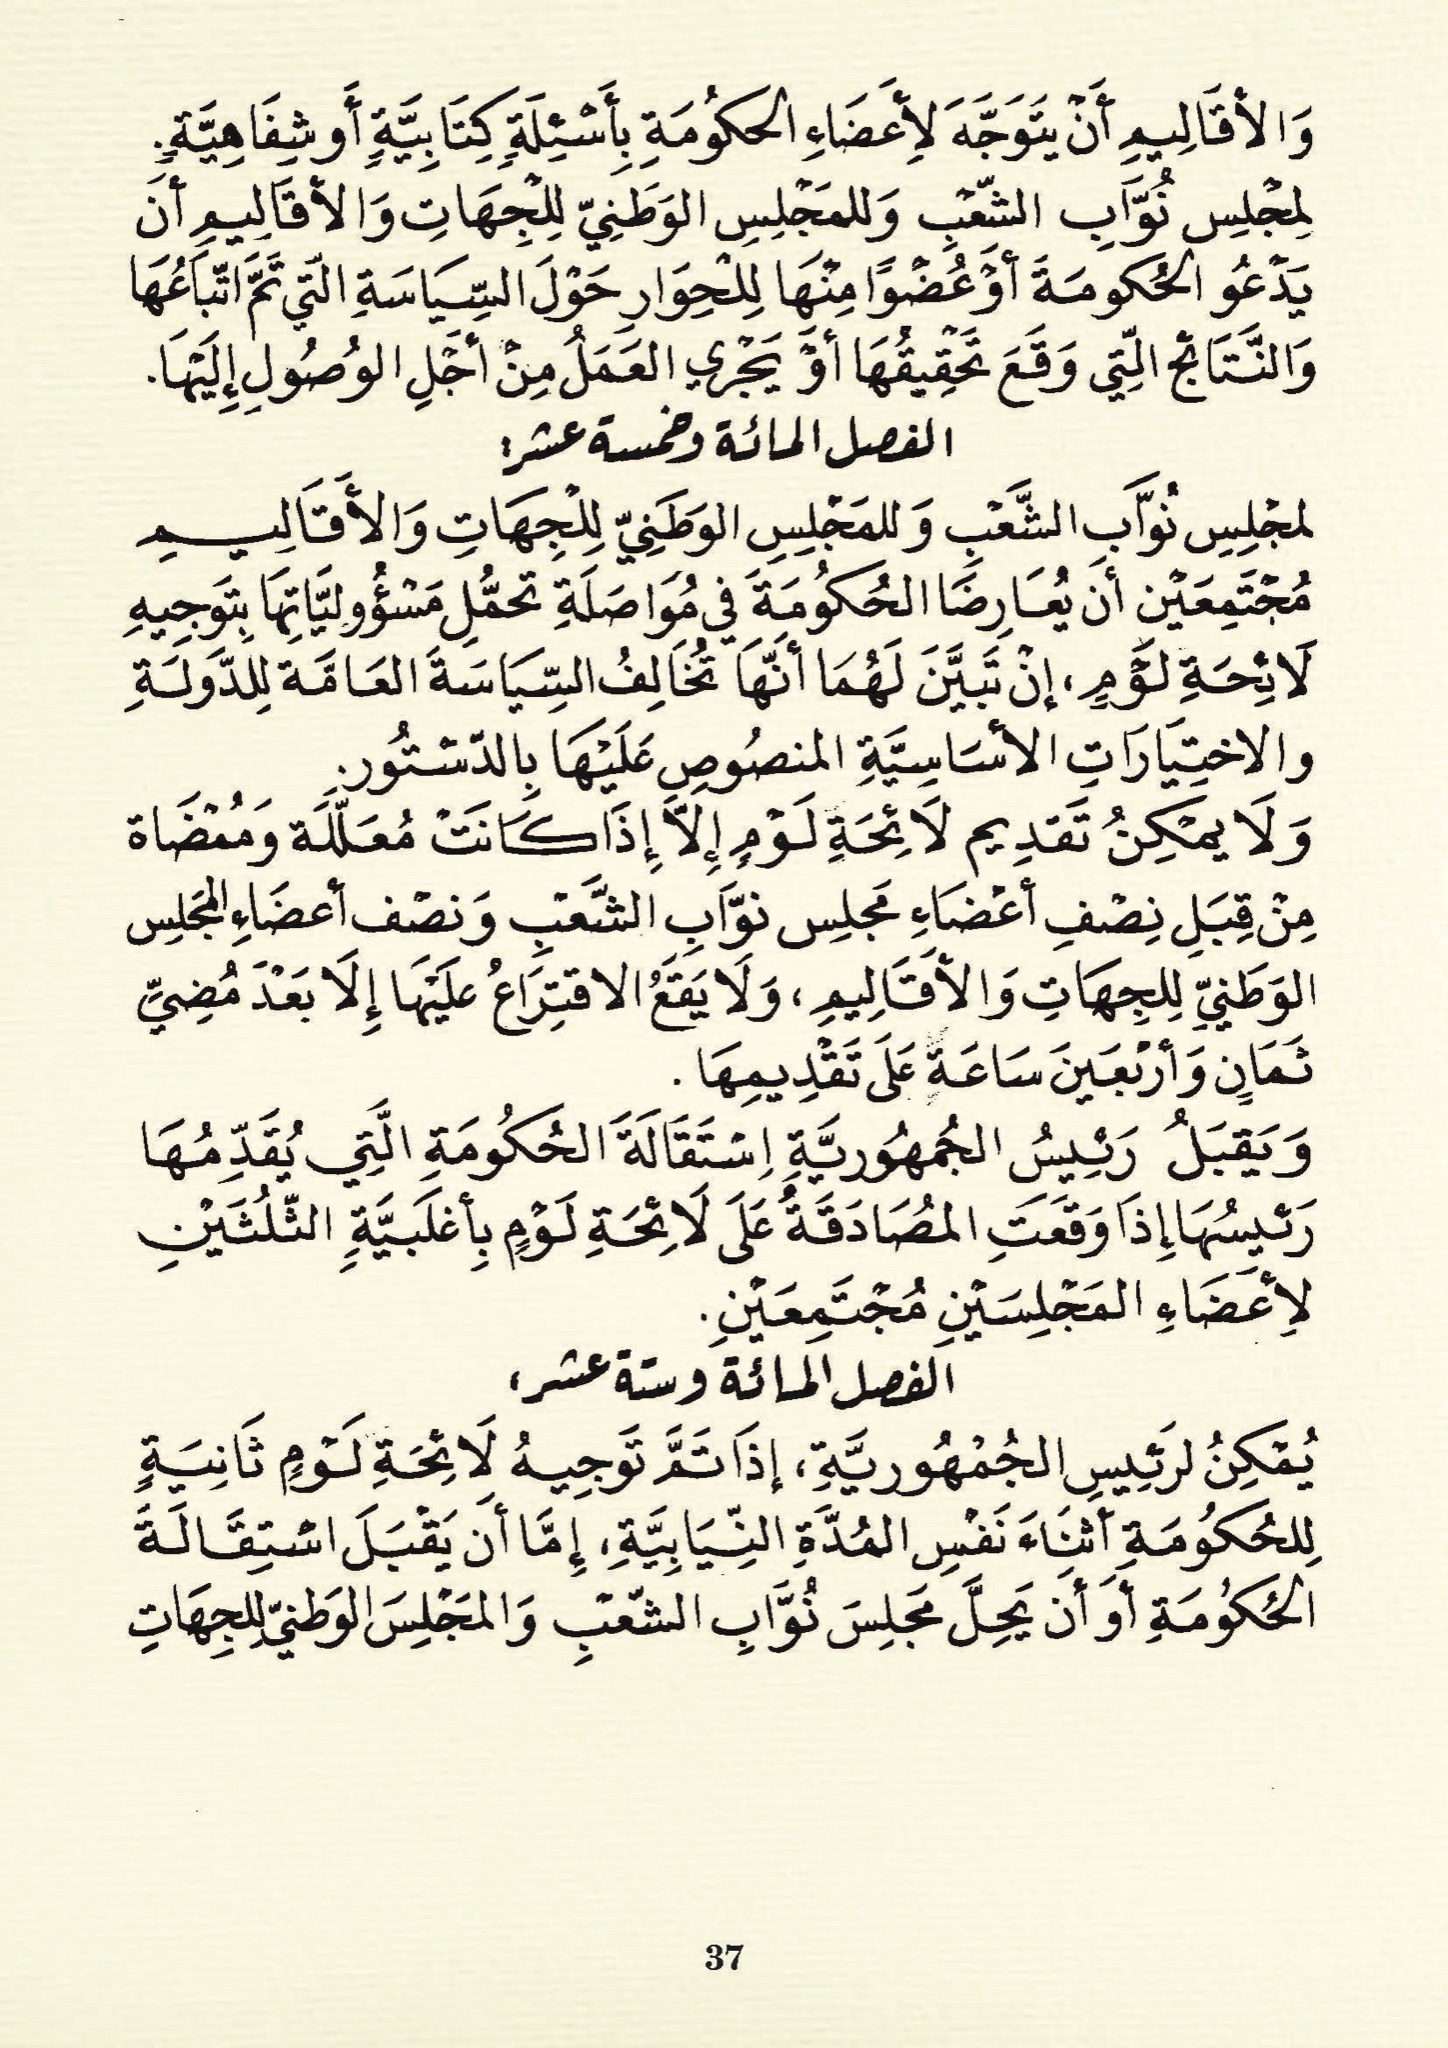 وَالأقَالِيمِ أَنْ يتَوَجَّهَ لأِعَضَاءِ الحَكُومَةِ بِأَسْئِلَةٍ كِتَابِيَّةٍ أَو شِفَاهِيَّةٍ.
لمِجْلِسِ نُوَّابِ الشّعْبِ وَللمَجْلِسِ الوَطَنِيّ لِلْجِهَاتِ وَالأقَالِيمِ أنَ
يَدْعُو الحُكومَةَ أوْ عُضْوًا مِنْهَا لِلْحِوَارِ حَوْلَ السِّيَاسَةِ الَّتي تَمَّ اتّبَاعُهَا
وَالنَّتَائج الِّتِي وَقَعَ تَحِقِيقُهَا أوْ يَجْرِي العَمَلُ مِنْ أجْلِ الوُصُولِ إِلَيْهَا.
الفصل المائة وخمسة عشر:
لمجْلِسِ نُوَّابِ الشَّعْبِ وَللمَجْلِسِ الوَطَنِيّ لِلْجِهَاتِ وَالأَقَالِيمِ
مُجْتَمِعَيْن أن يُعَارِضَا الحُكُومَةَ في مُوَاصَلَةِ تحمُّلِ مَسْؤُولِيَّاتِهَا بِتَوجِيهِ
لَائِحَةِ لَوْمٍ، إنْ تَبيَّنَ لَهُمَا أنَّهَا تُخَالِفُ السِّيَاسَةَ العَامَّة لِلدَّولَةِ
والاختِيَارَاتِ الأسَاسِيَّةِ المنصُوصِ عَلَيْهَا بِالدّسْتُور.
وَلَا يمْكِنُ تَقدِيم لَائِحَةِ لَوْمٍ إِلاَّ إِذَا كَانَتْ مُعَلَّلَة وَمُمْضَاة
مِنْ قِبَلِ نِصْفِ أعْضَاءِ مَجلِس نوَّابِ الشَّعْبِ وَنصْف أعضَاءِ المجَلِس
الوَطَنيِّ لِلجِهَاتِ وَالأقَالِيمِ، وَلَا يَقَعُ الاقتِرَاعُ علَيْهَا إِلَا بَعْدَ مُضِيِّ
ثَمَانٍ وَأرْبَعَينَ سَاعَةً عَلَى تَقْدِيمِهَا.
وَيَقبَلُ رَئِيسُ الجُمهُوريَّةِ اِسْتَقَالَةَ الحُكُومَةِ الَّتِي يُقَدِّمُهَا
رَئيسُهَا إِذَا وَقَعَتِ المصَُادَقَةُ عَلَى لَائِحَةِ لَوْمٍ بِأغلَبيَّةِ الثّلُثَيْنِ
لأِعَضَاءِ المَجْلِسَيْنِ مُجْتَمِعَيْنِ.
الفصل المائة وستة عشر:
يُمْكِنُ لرَئِيسِ الجُمْهُوريَّةِ، إذَا تَمَّ تَوجِيهُ لَائِحَةِ لَوْمٍ ثَانِيَةٍ
لِلحُكُومَةِ أثنَاءَ نَفْسِ المُدَّةِ النِّيَابِيَّةِ، إِمَّا أن يَقْبَلَ اسْتِقَالَةَ
الحُكُومَةِ أوَ أن يَحِلَّ مَجَلِسَ نُوَّابِ الشّعْبِ وَالمجَلِسَ الوَطنيّ لِلجِهَاتِ
37